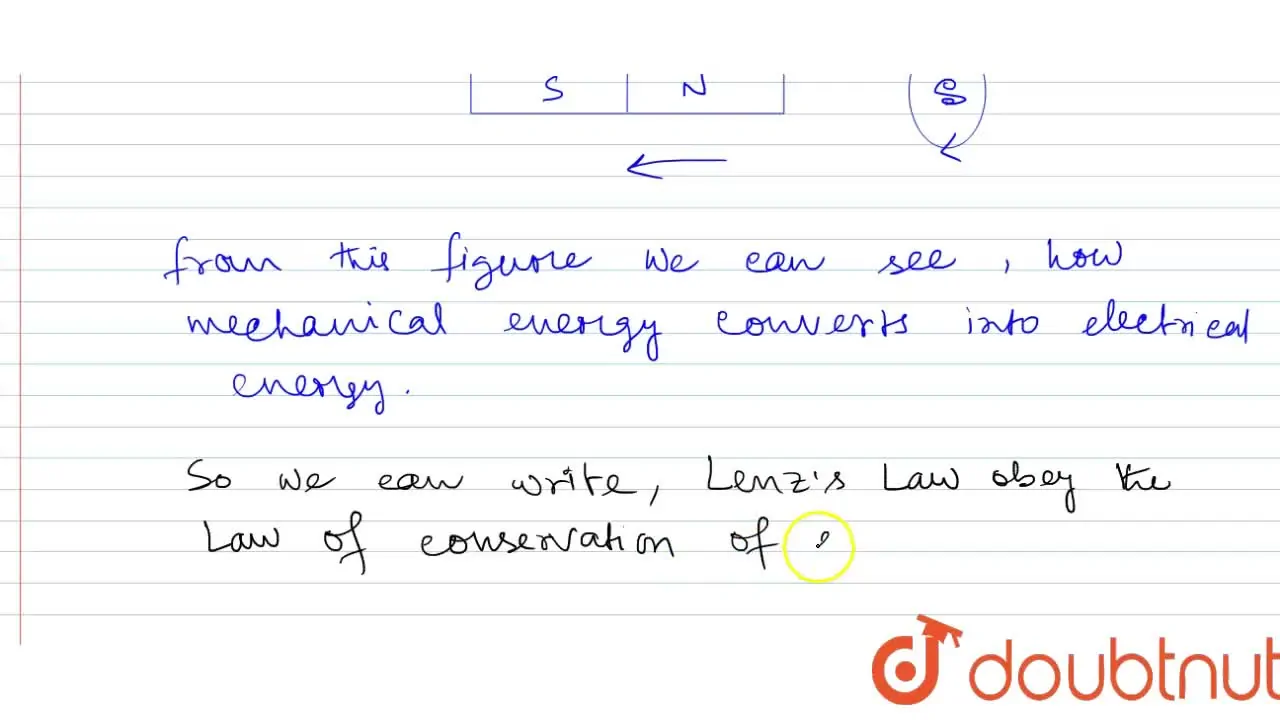 S N S
from this figure we can see, how
mechanical energy converts into electrical
energy.
So we can write, Lenz's Law obey the
Law of conservation of
doubtnut